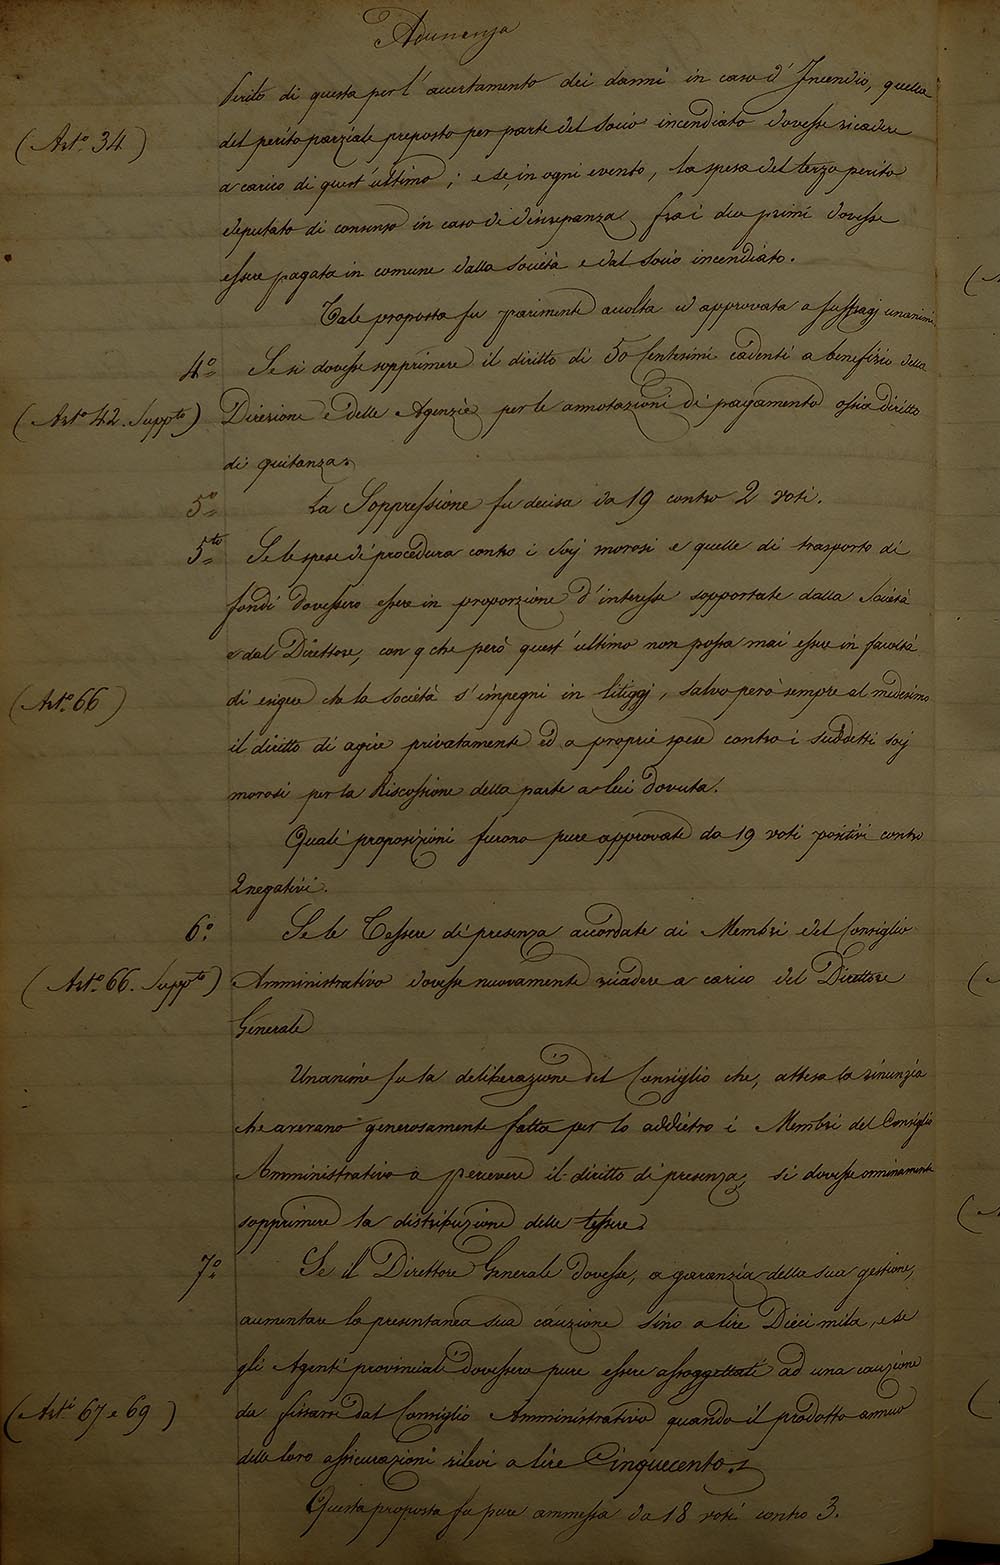 Adunanza
Perito di questa per l'accertamento dei danni in caso d'Incendio, quella
(Art.º 34) del perito parziale preposto per parte del Socio incendiato dovesse ricadere
a carico di quest'ultimo; e se, in ogni evento, la spesa del terzo perito
deputato di consenso in caso di discrepanza fra i due primi dovesse
essere pagata in comune dalla Società e dal Socio incendiato.
Tale proposta fu parimenti accolta ed approvata a suffragj unanimi.
4º Se si dovesse sopprimere il diritto di 50 Centesimi cadenti a benefizio della
(Art.º 42. Suppto) Direzione e delle Agenzie per le annotazioni di pagamento ossia diritto
di quitanza.
5º La Soppressione fu decisa da 19 contro 2 voti.
5to Se le spese di procedura contro i Socj morosi e quelle di trasporto di
fondi dovessero essere in proporzione d'interesse sopportate dalla Società
e dal Direttore, con q che però quest'ultimo non possa mai essere in facoltà
(Art.º 66) di esigere che la Società s'impegni in litiggj, salvo però sempre al medesimo
il diritto di agire privatamente ed a proprie spese contro i suddetti socj
morosi per la Riscossione della parte a lui dovuta.
Quali proposizioni furono pure approvate da 19 voti positivi contro
2 negativi.
6º Se le Tessere di presenza accordate ai Membri del Consiglio
(Art.º 66. Suppto) Amministrativo dovesse nuovamente ricadere a carico del Direttore
Generale
Unanime fu la deliberazione del Consiglio che, attesa la rinunzia
che avevano generosamente fatta per lo addietro i Membri del Consiglio
Amministrativo a percevere il diritto di presenza, si dovesse ominamente
sopprimere la distribuzione delle tessere.
7º Se il Direttore Generale dovesse, a garanzia della sua gestione,
aumentare la presentanea sua cauzione sino a lire Dieci mila, e se
gli Agenti provinciali dovessero pure essere assoggettati ad una cauzione
(Art.i 67 e 69) da fissarsi dal Consiglio Amministrativo quando il prodotto annuo
delle loro assicurazioni rilevi a lire Cinquecento.
Questa proposta fu pure ammessa da 18 voti contro 3.